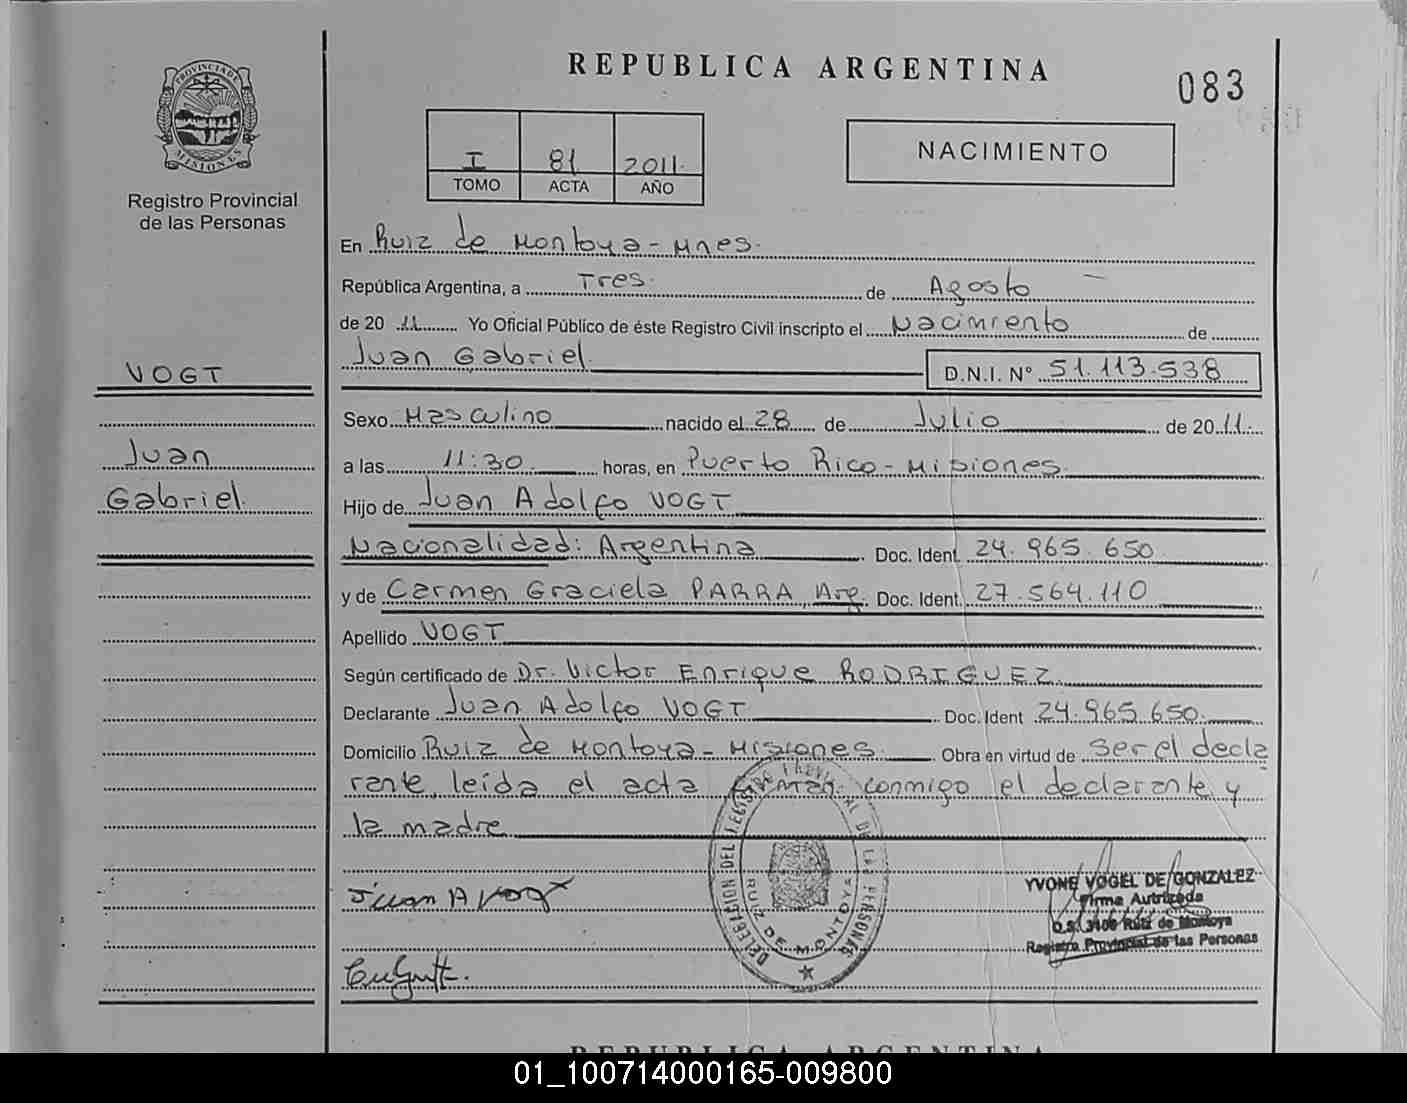 REPUBLICA ARGENTINA
083
PROVINCIA DE
MISIONES
Registro Provincial
de las Personas
I 81 2011.
TOMO ACTA AÑO
NACIMIENTO
En Ruiz de Montoya - Mnes.
República Argentina, a Tres. de Agosto
de 20 11 Yo Oficial Público de éste Registro Civil inscripto el Nacimiento de
Juan Gabriel.
D.N.I. N° 51.113.538
VOGT
Juan
Gabriel.
Sexo Masculino nacido el 28 de Julio de 20 11
a las 11:30 horas, en Puerto Rico - Misiones.
Hijo de Juan Adolfo VOGT
Nacionalidad: Argentina Doc. Ident. 24.965.650
y de Carmen Graciela PARRA, Arg. Doc. Ident. 27.564.110
Apellido VOGT
Según certificado de Dr. Victor Enrique RODRIGUEZ
Declarante Juan Adolfo VOGT Doc. Ident 24.965.650
Domicilio Ruiz de Montoya - Misiones. Obra en virtud de ser el decla
rante, leída el acta firman conmigo el declarante y
la madre
DELEGACION DEL REGISTRO PROVINCIAL DE LAS PERSONAS
RUIZ DE MONTOYA
Juan A Vogt
YVONE VOGEL DE GONZALEZ
Firma Autrizada
D.S. 3108 Ruiz de Montoya
Registro Provincial de las Personas
REPUBLICA ARGENTINA
01_100714000165-009800